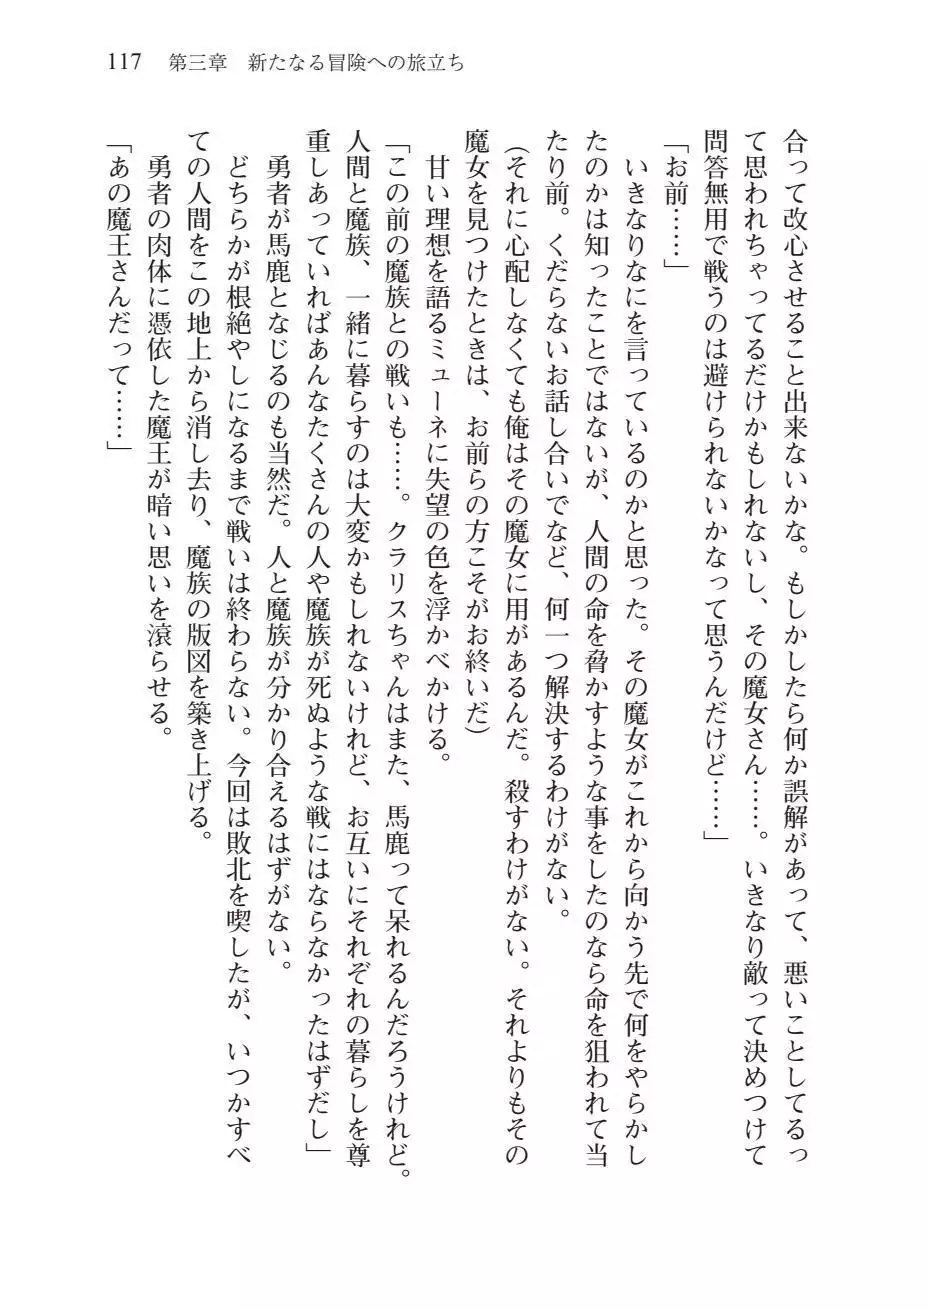 117　第三章　新たなる冒険への旅立ち
合って改心させること出来ないかな。もしかしたら何か誤解があって、悪いことしてるっ
て思われちゃってるだけかもしれないし、その魔女さん……。いきなり敵って決めつけて
問答無用で戦うのは避けられないかなって思うんだけど……」
「お前……」
　いきなりなにを言っているのかと思った。その魔女がこれから向かう先で何をやらかし
たのかは知ったことではないが、人間の命を脅かすような事をしたのなら命を狙われて当
たり前。くだらないお話し合いでなど、何一つ解決するわけがない。
（それに心配しなくても俺はその魔女に用があるんだ。殺すわけがない。それよりもその
魔女を見つけたときは、お前らの方こそがお終いだ）
　甘い理想を語るミューネに失望の色を浮かべかける。
「この前の魔族との戦いも……。クラリスちゃんはまた、馬鹿って呆れるんだろうけれど。
人間と魔族、一緒に暮らすのは大変かもしれないけれど、お互いにそれぞれの暮らしを尊
重しあっていればあんなたくさんの人や魔族が死ぬような戦にはならなかったはずだし」
　勇者が馬鹿となじるのも当然だ。人と魔族が分かり合えるはずがない。
　どちらかが根絶やしになるまで戦いは終わらない。今回は敗北を喫したが、いつかすべ
ての人間をこの地上から消し去り、魔族の版図を築き上げる。
　勇者の肉体に憑依した魔王が暗い思いを滾らせる。
「あの魔王さんだって……」